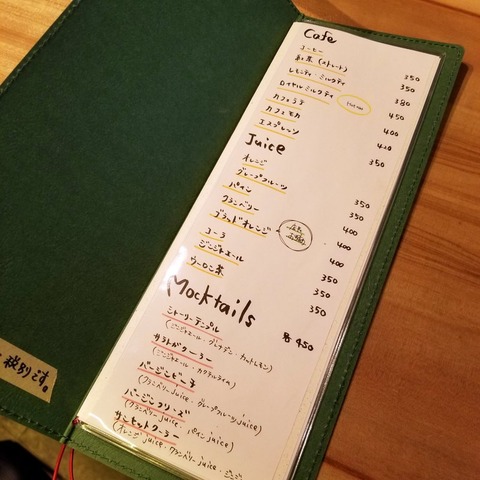 Cafe
コーヒー 350
紅茶(ストレート) 350
レモンティ・ミルクティ 380
ロイヤルミルクティ 450
カフェラテ 400
カフェモカ 420
エスプレッソ 350
Juice
オレンジ 350
グレープフルーツ 350
パイン 400
クランベリー 400
ブラッドオレンジ 400
コーラ 350
ジンジャエール 350
ウーロン茶 350
Mocktails
各450
シャーリーテンプル
(ジンジャエール・グレナデン・カットレモン)
サラトガクーラー
(ジンジャエール・カクテルライム)
バージンピーチ
(クランベリーjuice・グレープフルーツjuice)
バージンブリーズ
(クランベリーjuice・パインjuice)
サンセットクーラー
(オレンジjuice・クランベリーjuice・ジンジャ
税別です。